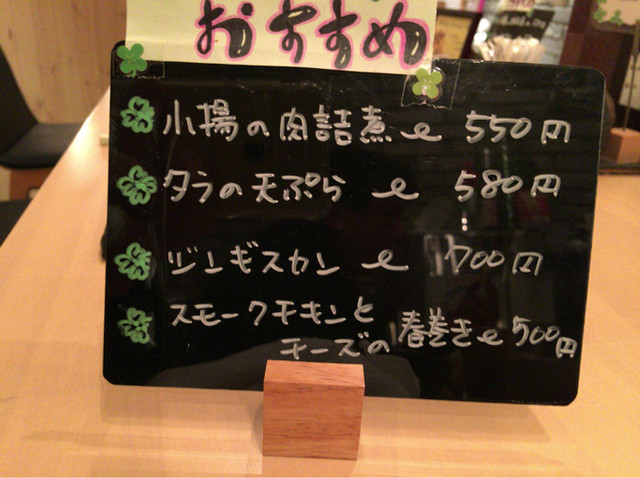 おすすめ
小揚の肉詰煮 550円
タラの天ぷら 580円
ジンギスカン 700円
スモークチキンと
チーズの春巻き 500円